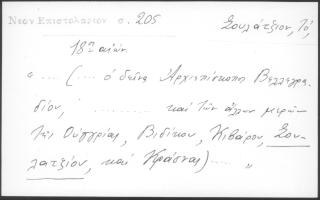 Νεον Επιστολαριον σ. 205
Σουλάτζιον, Τό,
18ος αιών
" ... (... ὁ δεῖνα Ἀρχιεπίσκοπος Βελλεγρα-
δίου, ......... καί τῶν ἄλλων μερῶν
τῆς Οὐγγρίας, Βιδίνου, Κιβάρου, Σου-
λατζίου, καί Κράσνας) .... "